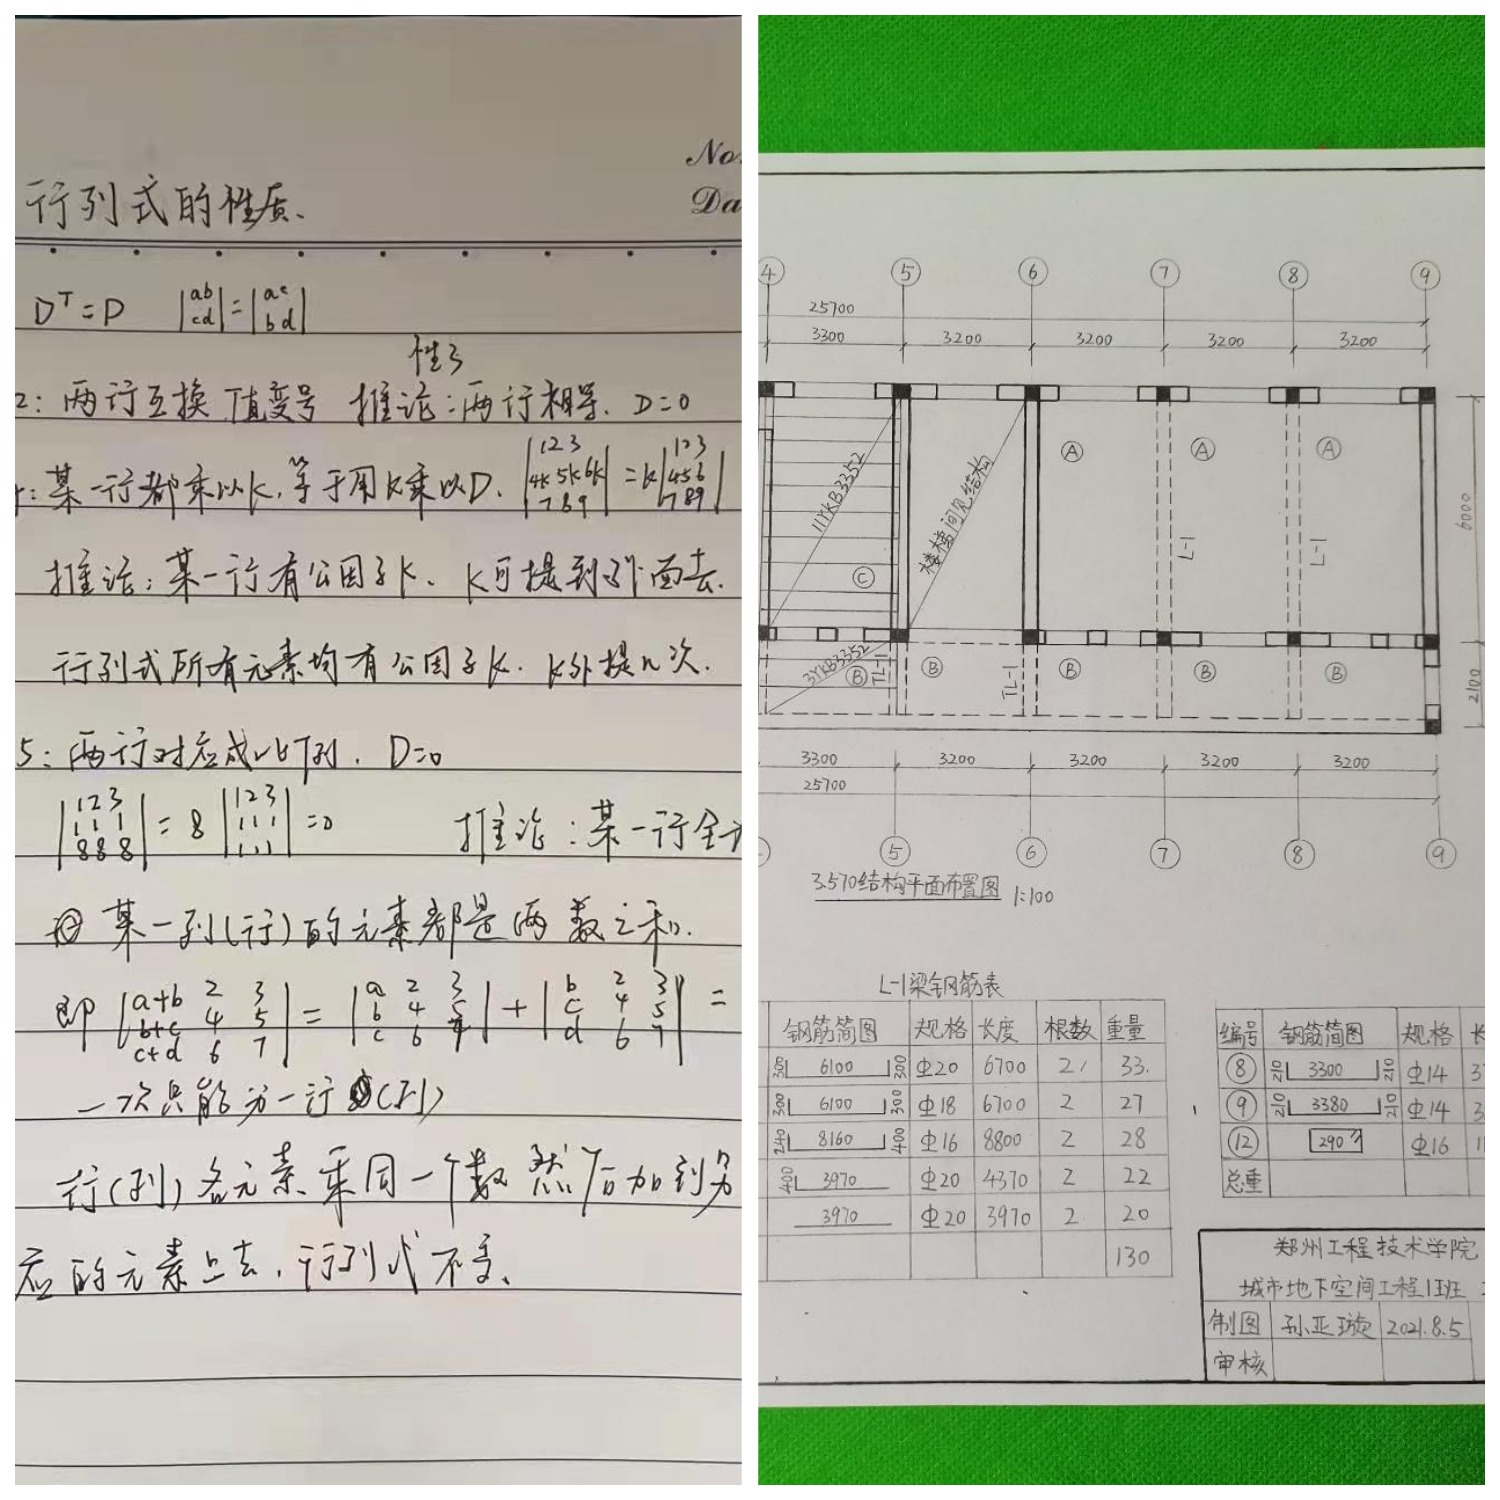 No.
Da
行列式的性质、
D^T=D |ab cd|=|ac bd|
性3
2: 两行互换 值变号 推论:两行相等. D=0
: 某一行都乘以k, 等于用k乘以D. |123 4k5k6k 789|=k|123 456 789|
推论: 某一行有公因子k、 k可提到外面去.
行列式所有元素均有公因子k. k外提n次.
5: 两行对应成比例. D=0
|123 111 888|=8|123 111 111|=0 推论:某一行全
某一列(行)的元素都是两数之和.
即 |a+b 2 3 b+c 4 5 c+d 6 7|=|a 2 3 b 4 5 c 6 7|+|b 2 3 c 4 5 d 6 7|=
一次只能分一行(列)
行(列)各元素乘同一个数然后加到另
应的元素上去, 行列式不变、
4 5 6 7 8 9
25700
3300 3200 3200 3200 3200
11YKB3352
楼梯间见结构
A A A
L-1 L-1
C
6000
3YKB3352
B TL-1 B TL-1 B B B
2100
3300 3200 3200 3200 3200
25700
5 6 7 8 9
3.570结构平面布置图 1:100
L-1梁钢筋表
钢筋简图 规格 长度 根数 重量
300 6100 300 Φ20 6700 2 33.
300 6100 300 Φ18 6700 2 27
240 8160 400 Φ16 8800 2 28
400 3970 Φ20 4370 2 22
3970 Φ20 3970 2 20
130
编号 钢筋简图 规格 长
⑧ 210 3300 210 Φ14 3
⑨ 210 3380 210 Φ14 3
⑫ 290 Φ16 1
总重
郑州工程技术学院
城市地下空间工程1班
制图 孙亚璇 2021.8.5
审核